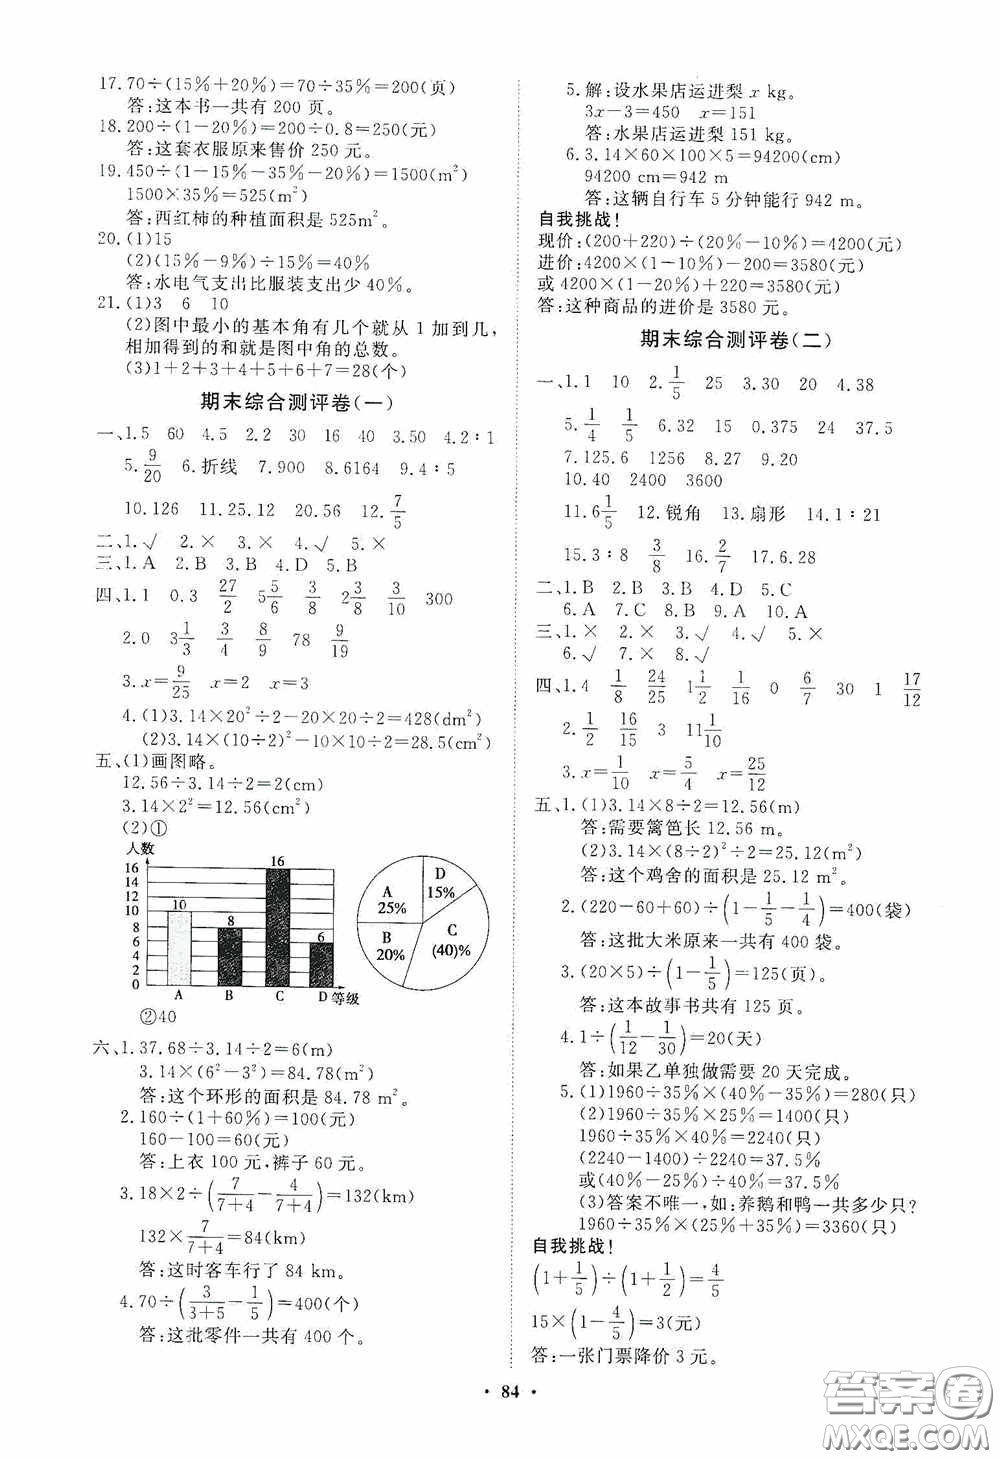 17. 70÷(15%+20%)=70÷35%=200(页)
答:这本书一共有 200 页。
18. 200÷(1-20%)=200÷0.8=250(元)
答:这套衣服原来售价 250 元。
19. 450÷(1-15%-35%-20%)=1500(m²)
1500×35%=525(m²)
答:西红柿的种植面积是 525m²。
20. (1)15
(2)(15%-9%)÷15%=40%
答:水电气支出比服装支出少 40%。
21. (1)3 6 10
(2)图中最小的基本角有几个就从 1 加到几,
相加得到的和就是图中角的总数。
(3)1+2+3+4+5+6+7=28(个)
期末综合测评卷(一)
一、1.5 60 4.5 2.2 30 16 40 3.50 4.2∶1
5. 9/20 6.折线 7.900 8.6164 9.4∶5
10.126 11.25.12 20.56 12. 7/5
二、1.√ 2.× 3.× 4.√ 5.×
三、1.A 2.B 3.B 4.D 5.B
四、1.1 0.3 27/2 5 5/6 3/8 2 3/8 3/10 300
2.0 3 1/3 3/4 8/9 78 9/19
3.x=9/25 x=2 x=3
4.(1)3.14×20²÷2-20×20÷2=428(dm²)
(2)3.14×(10÷2)²-10×10÷2=28.5(cm²)
五、(1)画图略。
12.56÷3.14÷2=2(cm)
3.14×2²=12.56(cm²)
(2)①
人数
16
14
12
10
8
6
4
2
0
10
8
16
6
A B C D 等级
A
25%
D
15%
B
20%
C
(40)%
②40
六、1.37.68÷3.14÷2=6(m)
3.14×(6²-3²)=84.78(m²)
答:这个环形的面积是 84.78 m²。
2.160÷(1+60%)=100(元)
160-100=60(元)
答:上衣 100 元,裤子 60 元。
3.18×2÷(7/(7+4)-4/(7+4))=132(km)
132×7/(7+4)=84(km)
答:这时客车行了 84 km。
4.70÷(3/(3+5)-1/5)=400(个)
答:这批零件一共有 400 个。
5.解:设水果店运进梨 x kg。
3x-3=450 x=151
答:水果店运进梨 151 kg。
6.3.14×60×100×5=94200(cm)
94200 cm=942 m
答:这辆自行车 5 分钟能行 942 m。
自我挑战!
现价:(200+220)÷(20%-10%)=4200(元)
进价:4200×(1-10%)-200=3580(元)
或 4200×(1-20%)+220=3580(元)
答:这种商品的进价是 3580 元。
期末综合测评卷(二)
一、1.1 10 2. 1/5 25 3.30 20 4.38
5. 1/4 1/5 6.32 15 0.375 24 37.5
7.125.6 1256 8.27 9.20
10.40 2400 3600
11.6 1/5 12.锐角 13.扇形 14.1∶21
15.3∶8 3/8 16. 2/7 17.6.28
二、1.B 2.B 3.B 4.D 5.C
6.A 7.C 8.B 9.A 10.A
三、1.× 2.× 3.√ 4.√ 5.×
6.√ 7.× 8.√
四、1.4 1/8 24/25 1 1/2 1/16 0 6/7 30 1 17/12
2. 1/2 16/15 3 11 1/10
3.x=1/10 x=5/4 x=25/12
五、1.(1)3.14×8÷2=12.56(m)
答:需要篱笆长 12.56 m。
(2)3.14×(8÷2)²÷2=25.12(m²)
答:这个鸡舍的面积是 25.12 m²。
2.(220-60+60)÷(1-1/5-1/4)=400(袋)
答:这批大米原来一共有 400 袋。
3.(20×5)÷(1-1/5)=125(页)。
答:这本故事书共有 125 页。
4.1÷(1/12-1/30)=20(天)
答:如果乙单独做需要 20 天完成。
5.(1)1960÷35%×(40%-35%)=280(只)
(2)1960÷35%×25%=1400(只)
1960÷35%×40%=2240(只)
(2240-1400)÷2240=37.5%
或(40%-25%)÷40%=37.5%
(3)答案不唯一,如:养鹅和鸭一共多少只?
1960÷35%×(25%+35%)=3360(只)
自我挑战!
(1+1/5)÷(1+1/2)=4/5
15×(1-4/5)=3(元)
答:一张门票降价 3 元。
· 84 ·
答案卷
MXQE.COM